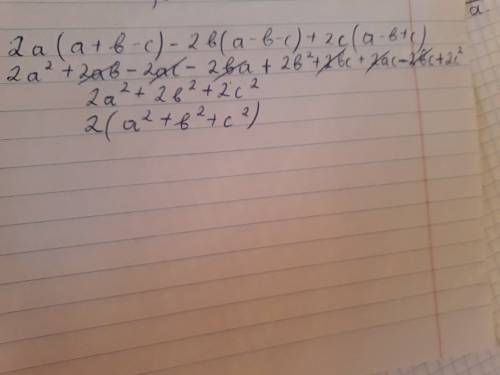 a.
2a(a+b-c)-2b(a-b-c)+2c(a-b+c)
2a²+2ab-2ac-2ba+2b²+2bc+2ac-2bc+2c²
2a²+2b²+2c²
2(a²+b²+c²)